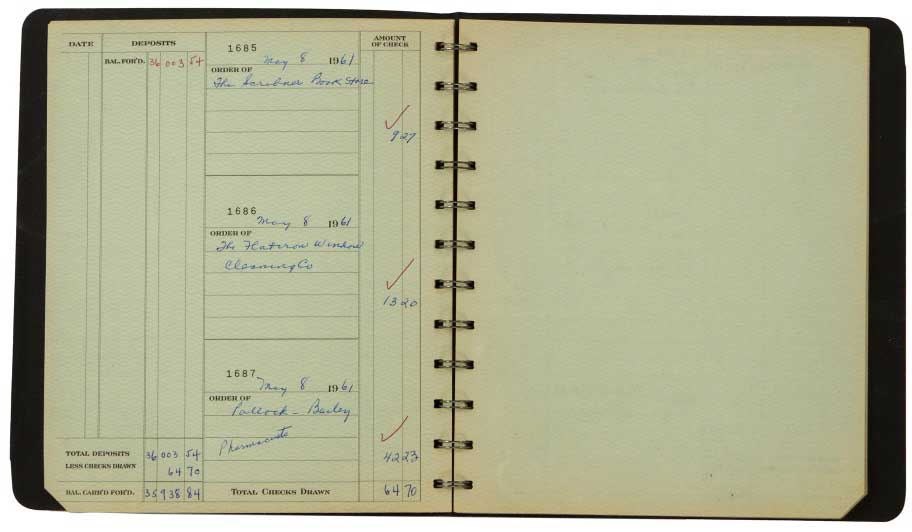 DATE DEPOSITS AMOUNT OF CHECK
BAL. FOR'D. 36 003 54
1685
May 8 1961
ORDER OF
The Scribner Book Store
9 27
1686
May 8 1961
ORDER OF
The Flatiron Window
Cleaning Co
13 20
1687
May 8 1961
ORDER OF
Pollock - Bailey
Pharmacists
42 23
TOTAL DEPOSITS 36 003 54
LESS CHECKS DRAWN 64 70
BAL. CARR'D FOR'D. 35 938 84 TOTAL CHECKS DRAWN 64 70